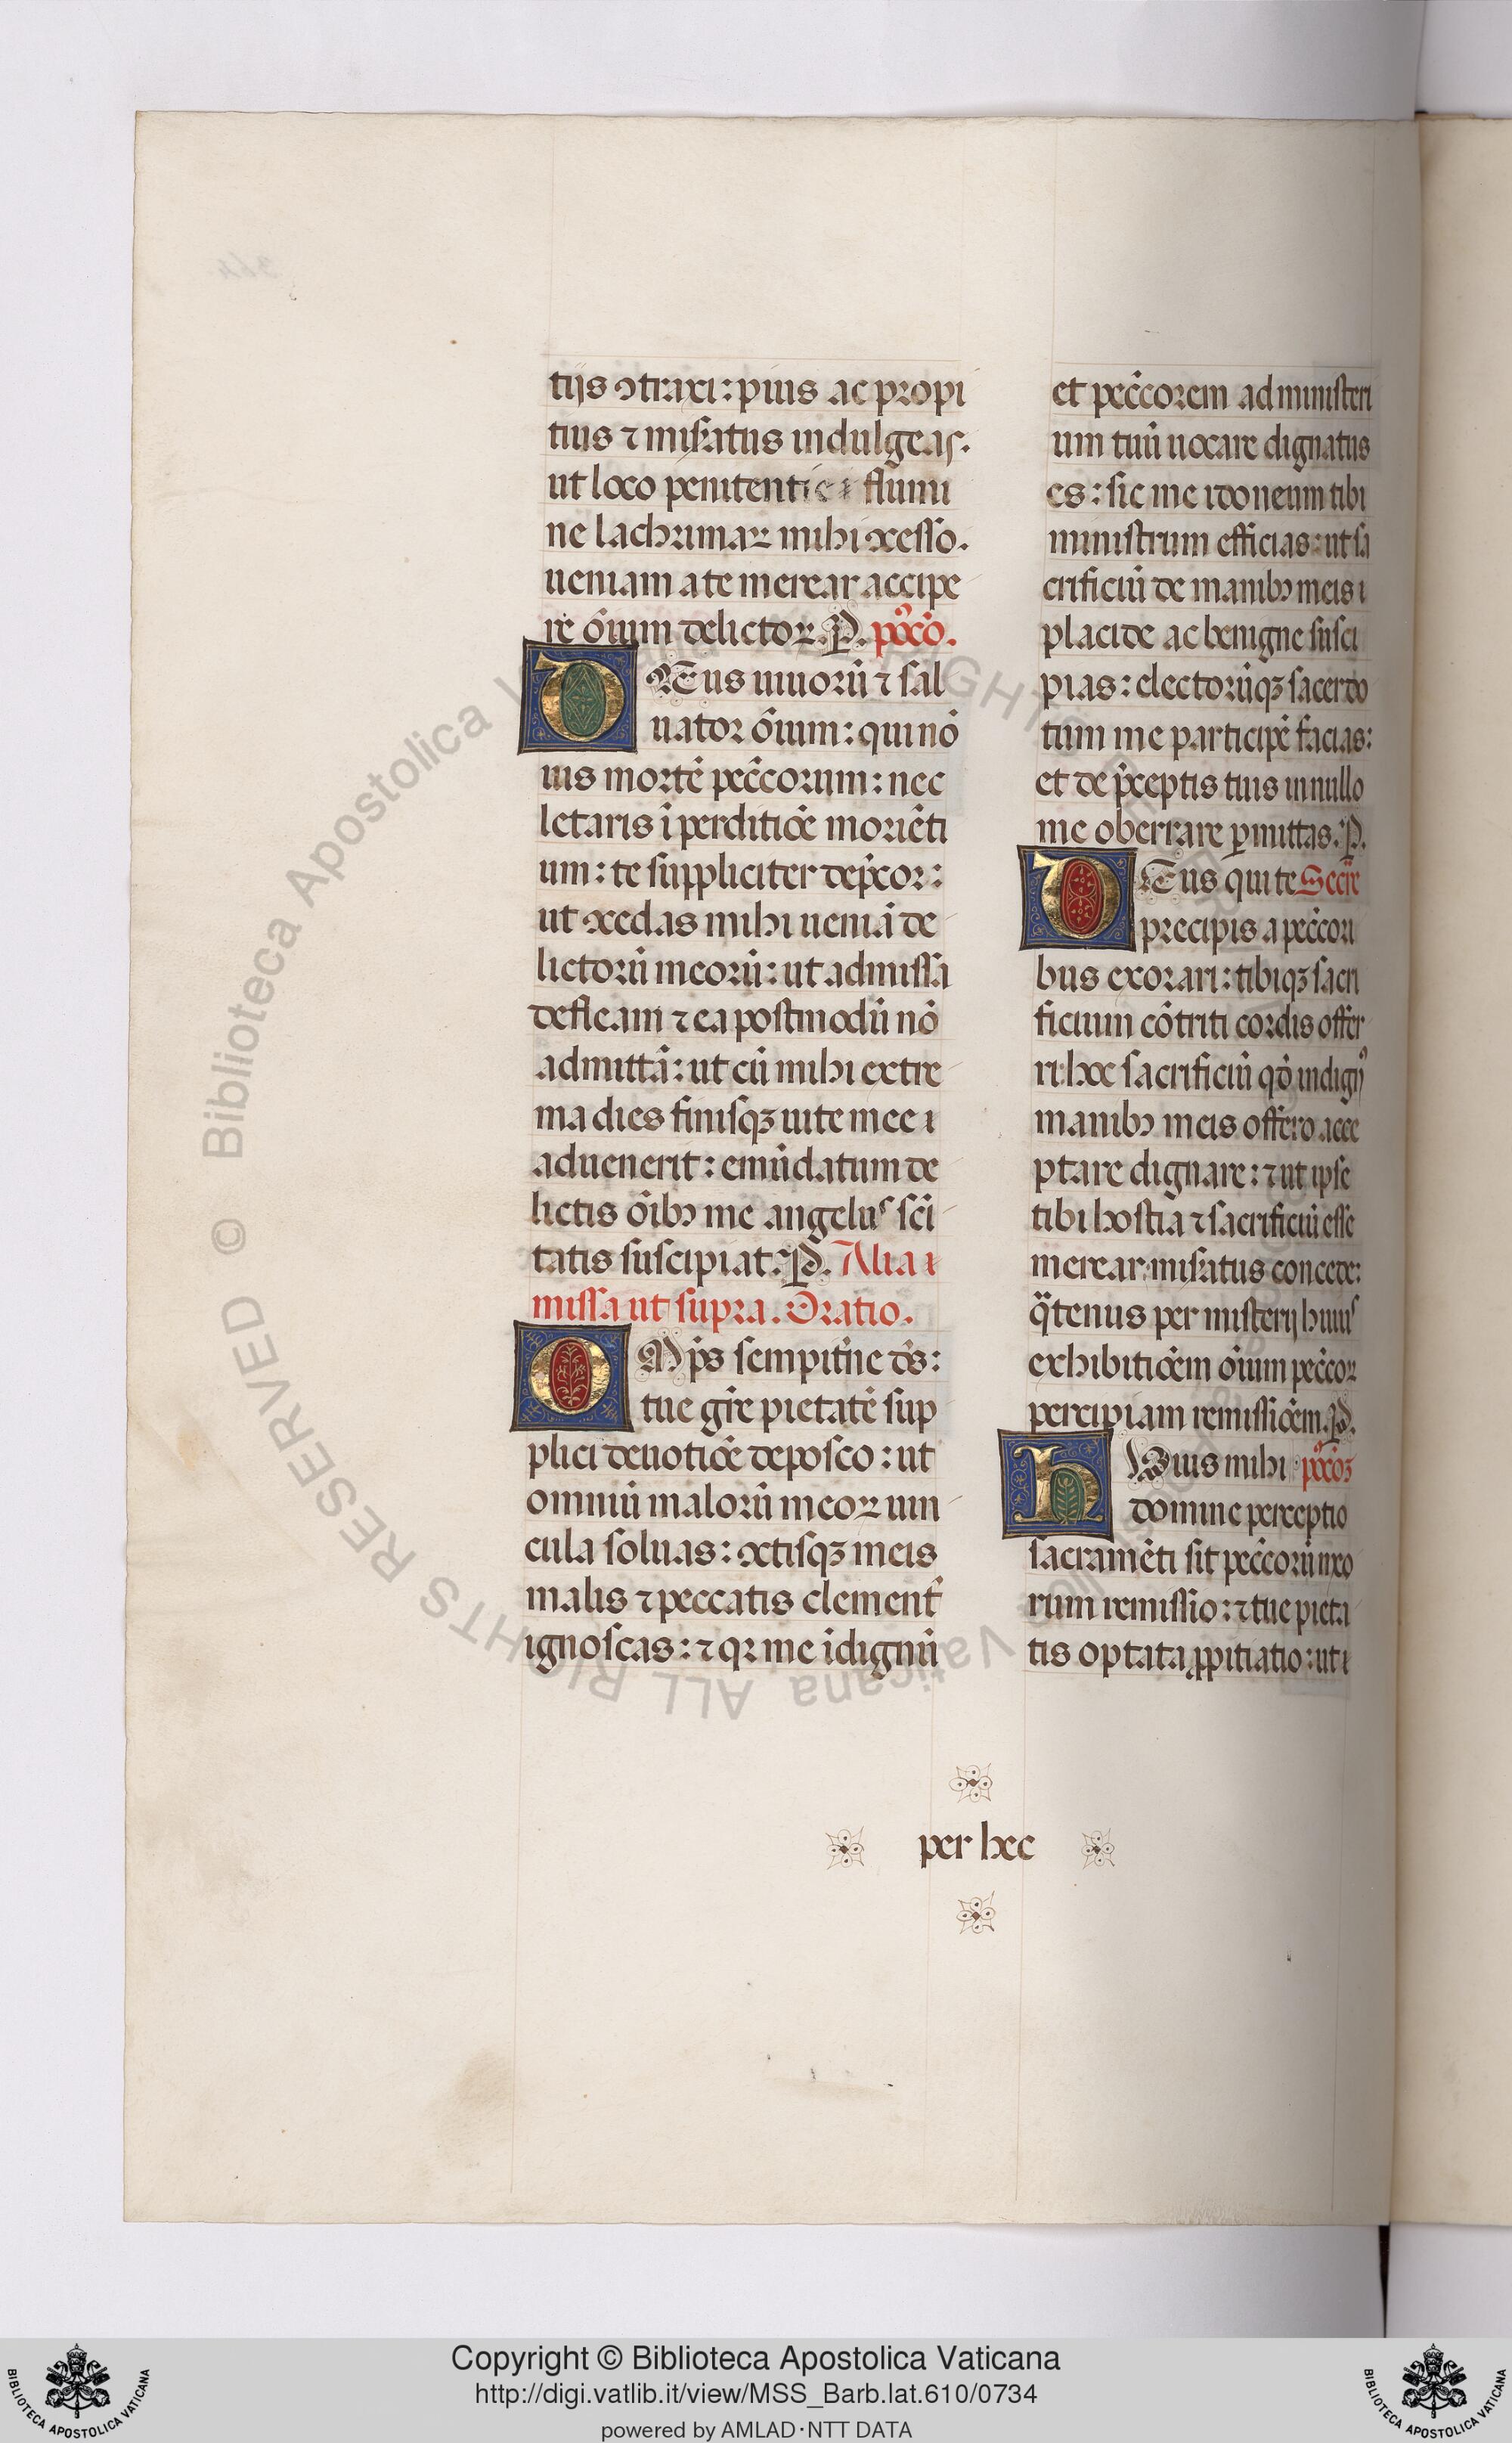 tijs ↄtraxi: pius ac propi
tius ⁊ miẜatus indulgeas.
ut loco penitentie ⁊ flumi
ne lachrimaꝝ mihi ↄcesso.
ueniam a te merear accipe
re oi᷒um delictoꝝ. P. po᷒co᷒.
DEus uiuorũ ⁊ sal
uator õium: qui nõ
uis mortẽ pec̃corum: nec
letaris ĩ perditiõe moriẽti
um: te suppliciter dep̃cor:
ut ↄcedas mihi ueniã de
lictorũ meorũ: ut admissa
defleam ⁊ ea postmodũ nõ
admittã: ut cũ mihi extre
ma dies finisqꝫ uite mee
aduenerit: emũdatum de
lictis õibꝰ me angelus sc̃i
tatis suscipiat: P. Alia
missa ut supra. Oratio.
OMp̃s sempit̃ne d̃s:
tue gl̃e pietatẽ sup
plici deuotiõe deposco: ut
omniũ malorũ meoꝝ uin
cula soluas: ↄctisqꝫ meis
malis ⁊ peccatis clement̃
ignoscas: ⁊ qꝛ me ĩdignũ
et pec̃corem ad ministeri
um tuũ uocare dignatus
es: sic me idoneum tibi
ministrum efficias: ut sa
crificiũ de manibꝰ meis
placide ac benigne susci
pias: electorũqꝫ sacerdo
tum me participẽ facias:
et de p̃ceptis tuis in nullo
me oberrare ꝑmittas. P.
DEus qui te Secre
precipis a pec̃cori
bus exorari: tibiqꝫ sacri
ficium cõtriti cordis offer
ri: hoc sacrificiũ qõ indignꝰ
manibꝰ meis offero acce
ptare dignare: ⁊ ut ipse
tibi hostia ⁊ sacrificiũ esse
merear: miẜatus concede:
q̃tenus per misterij huius
exhibitiõem õium pec̃coꝝ
percipiam remissiõem. P.
HUius mihi po᷒co᷒
domine perceptio
sacramẽti sit pec̃corũ meo
rum remissio: ⁊ tue pieta
tis optata ꝓpitiatio: ut
per hec
Copyright © Biblioteca Apostolica Vaticana
http://digi.vatlib.it/view/MSS_Barb.lat.610/0734
powered by AMLAD·NTT DATA
BIBLIOTECA APOSTOLICA VATICANA
BIBLIOTECA APOSTOLICA VATICANA
© Biblioteca Apostolica Vaticana ALL RIGHTS RESERVED